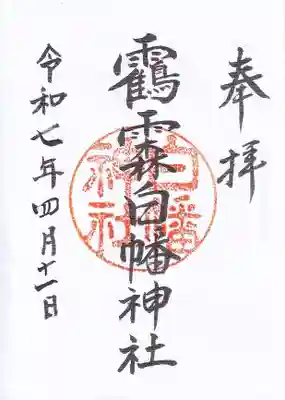 奉拝
靏霖白幡神社
令和七年四月十一日
白幡
神社